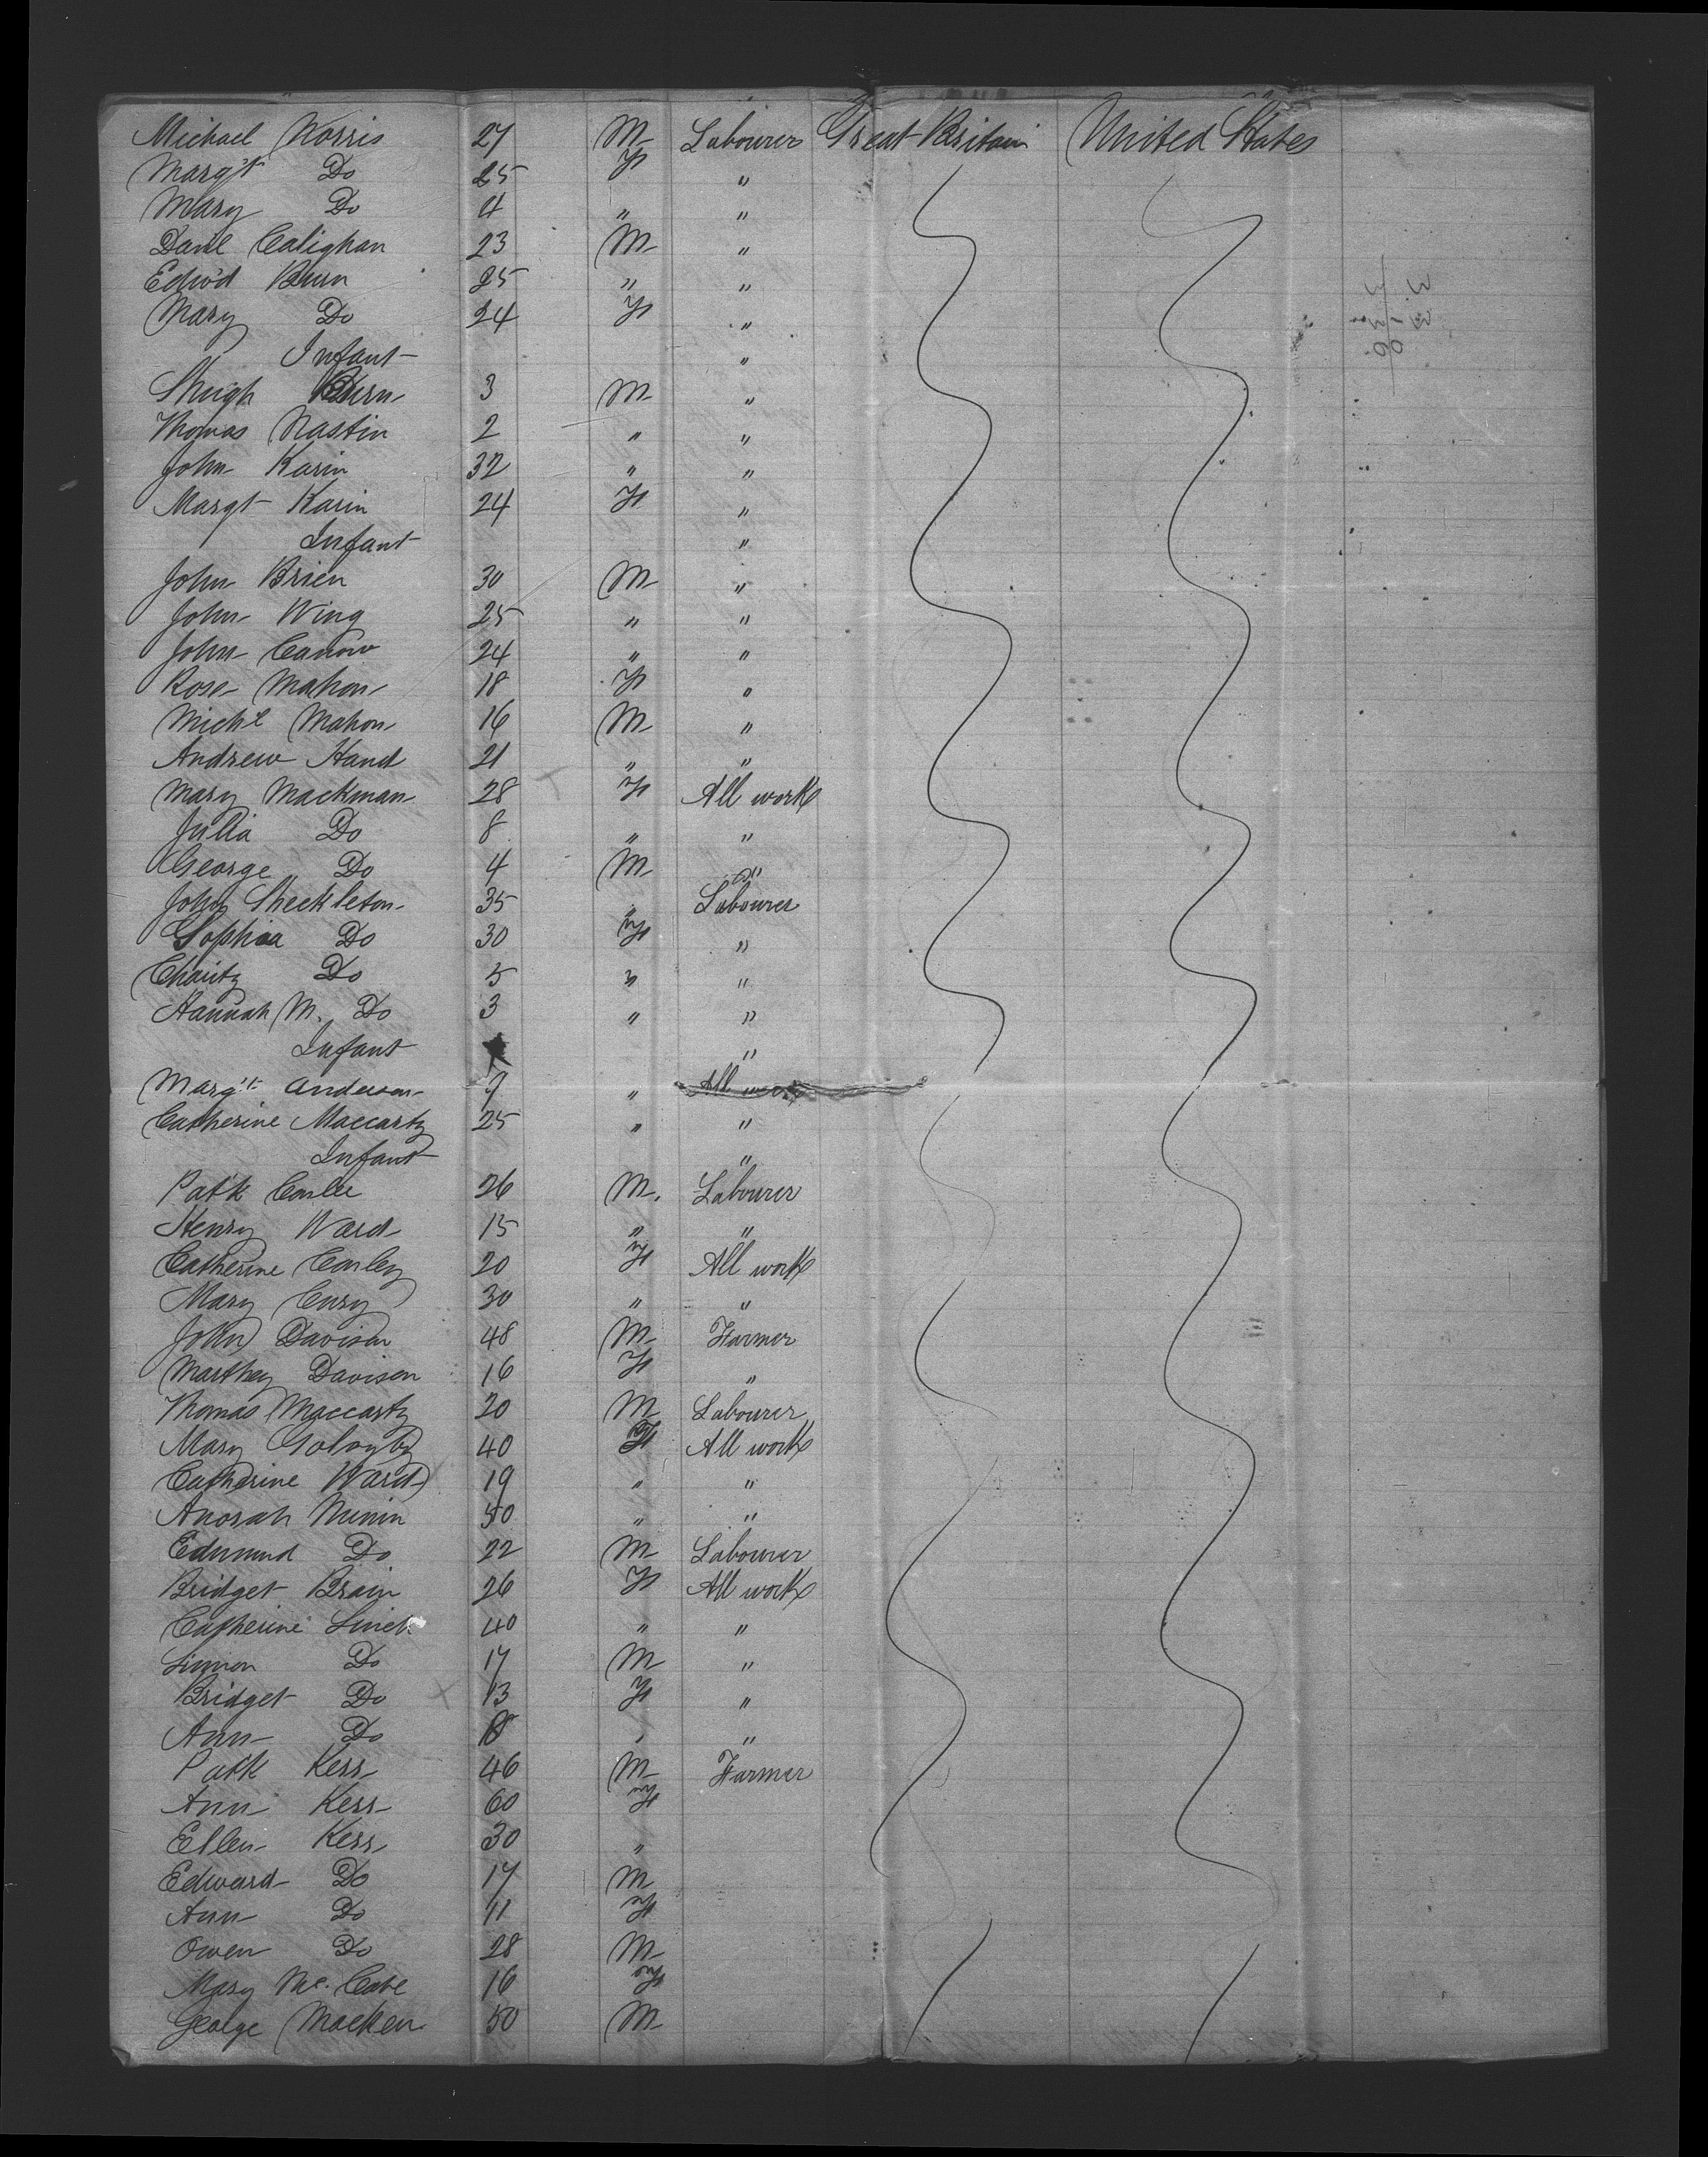 Michael Norris 27 M Labourer Great Britain United States
Marg't Do 25 F "
Mary Do 4 " "
Danl Calighan 23 M "
Edw'd Burn 25 " "
Mary Do 24 F "
Infant "
Hugh Burn 3 M "
Thomas Nastin 2 " "
John Karin 32 " "
Margt Karin 24 F "
Infant "
John Brien 30 M "
John Wing 25 " "
John Canow 24 " "
Rose Mahon 18 F "
Michl Mahon 16 M "
Andrew Hand 21 " "
Mary Mackman 28 F All work
Julia Do 8 " "
George Do 4 M "
John Sheckleton 35 " Labourer
Sophia Do 30 F "
Charity Do 5 " "
Hannah M. Do 3 " "
Infant "
Marg't Anderson 9 " All work
Catherine Maccarty 25 " "
Infant "
Patk Conlee 26 M. Labourer
Henry Ward 15 " "
Catherine Conley 20 F All work
Mary Cury 30 " "
John Davison 48 M Farmer
Marthey Davison 16 F "
Thomas Maccarty 20 M Labourer
Mary 40 F All work
Catherine Ward 19 " "
Anorah Minin 50 " "
Edmund Do 22 M Labourer
Bridget Brain 26 F All work
Catherine 40 " "
Simon Do 17 M "
Bridget Do 13 F "
Ann Do "
Patk Kerr 46 M Farmer
Ann Kerr 60 F
Ellen Kerr 30 "
Edward Do 17 M
Ann Do 11 F
Owen Do 28 M
Mary Mc. Cabe 16 F
George Macken 50 M